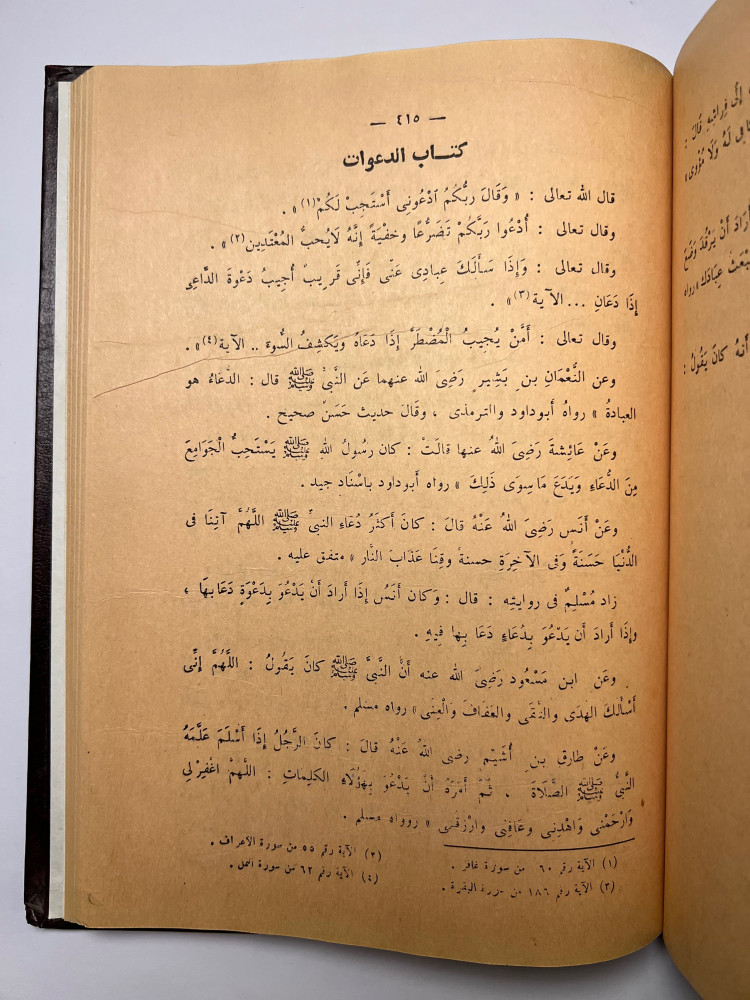 — ٤١٥ —
كتـاب الدعوات
قال الله تعالى : « وَقَالَ رَبُّكُمُ ادْعُونِى أَسْتَجِبْ لَكُمْ(١) » .
وقال تعالى : أُدْعُوا رَبَّكُمْ تَضَرُّعًا وخفْيَةً إنَّهُ لَايُحبُّ المُعْتَدِين(٢) » .
وقال تعالى : وَإِذَا سَأَلَكَ عِبادِى عَنِّى فَإِنِّى قَرِيبٌ أُجِيبُ دَعْوَةَ الدَّاعِى
إِذَا دَعَانِ ... الآية(٣) » .
وقال تعالى : أَمَّنْ يُجِيبُ الْمُضْطَرَّ إذَا دَعَاهُ وَيَكشِفُ السُّوءَ .. الآية(٤) » .
وعن النُّعْمَانِ بن بَشِيرٍ رَضِىَ الله عنهما عَن النَّبىِّ ﷺ قال : الدُّعَاءُ هو
العبادةُ » رواه أبوداود والترمذى ، وقَالَ حديث حَسَنٌ صحيح .
وعَنْ عَائِشةَ رَضِىَ اللهُ عنها قالَتْ : كان رسُولُ اللهِ ﷺ يَسْتَحِبُّ الْجَوَامِعَ
مِنَ الدُّعَاءِ وَيَدَعَ مَا سِوَى ذَلِكَ » رواه أبوداود باسْنَاد جيد .
وعَنْ أنَس رَضِىَ اللهُ عَنْهُ قالَ : كانَ أكثَرُ دُعَاءِ النبىِّ ﷺ اللَّهُمَّ آتِنَا فى
الدُّنْيَا حَسَنَةً وَفى الآخِرَةِ حسنةً وقِنَا عَذَابَ النَّار » متفق عليه .
زاد مُسْلِمٌ فى روايتِهِ : قال : وَكان أَنَسُ إذَا أرادَ أنْ يَدْعُوَ بِدَعْوَةٍ دَعَا بهَا ،
وإذَا أرادَ أن يَدْعُوَ بِدُعَاءٍ دَعَا بِهَا فِيهِ .
وعَن ابن مَسْعُود رَضِىَ الله عنه أنَّ النَّبىَّ ﷺ كانَ يَقُولُ : اللَّهُمَّ إنِّى
أسْأَلكَ الهدَى والتقَى والعَفافَ والْغِنى » رواه مسلم .
وعَنْ طارِق بنِ أُشَيْم رضى اللهُ عَنْهُ قالَ : كان الرَّجُلُ إذَا أَسْلَمَ عَلَّمَهُ
النَّبىُّ ﷺ الصَّلَاةَ . ثُمَّ أمَرَهُ أنْ يَدْعُوَ بهؤُلَاءِ الكلِمَاتِ : اللَّهُمَّ اغْفِرْ لِى
وَارْحَمْنى وَاهْدِنى وعَافِنى وارْزقْنى » روواه مسلم .
(١) الآية رقم ٦٠ من سورة غافر .
(٢) الآية رقم ٥٥ من سورة الأعراف .
(٣) الآية رقم ١٨٦ من سورة البقرة .
(٤) الآية رقم ٦٢ من سورة النمل .
إلَى فِرَاشِهِ قَالَ :
لَهُ وَلَا مُؤْوِى »
أرَادَ أنْ يَرْقُدَ وَضَعَ
تَبْعَثُ عِبَادَكَ » رواه
أنهُ كانَ يَقُولُ :